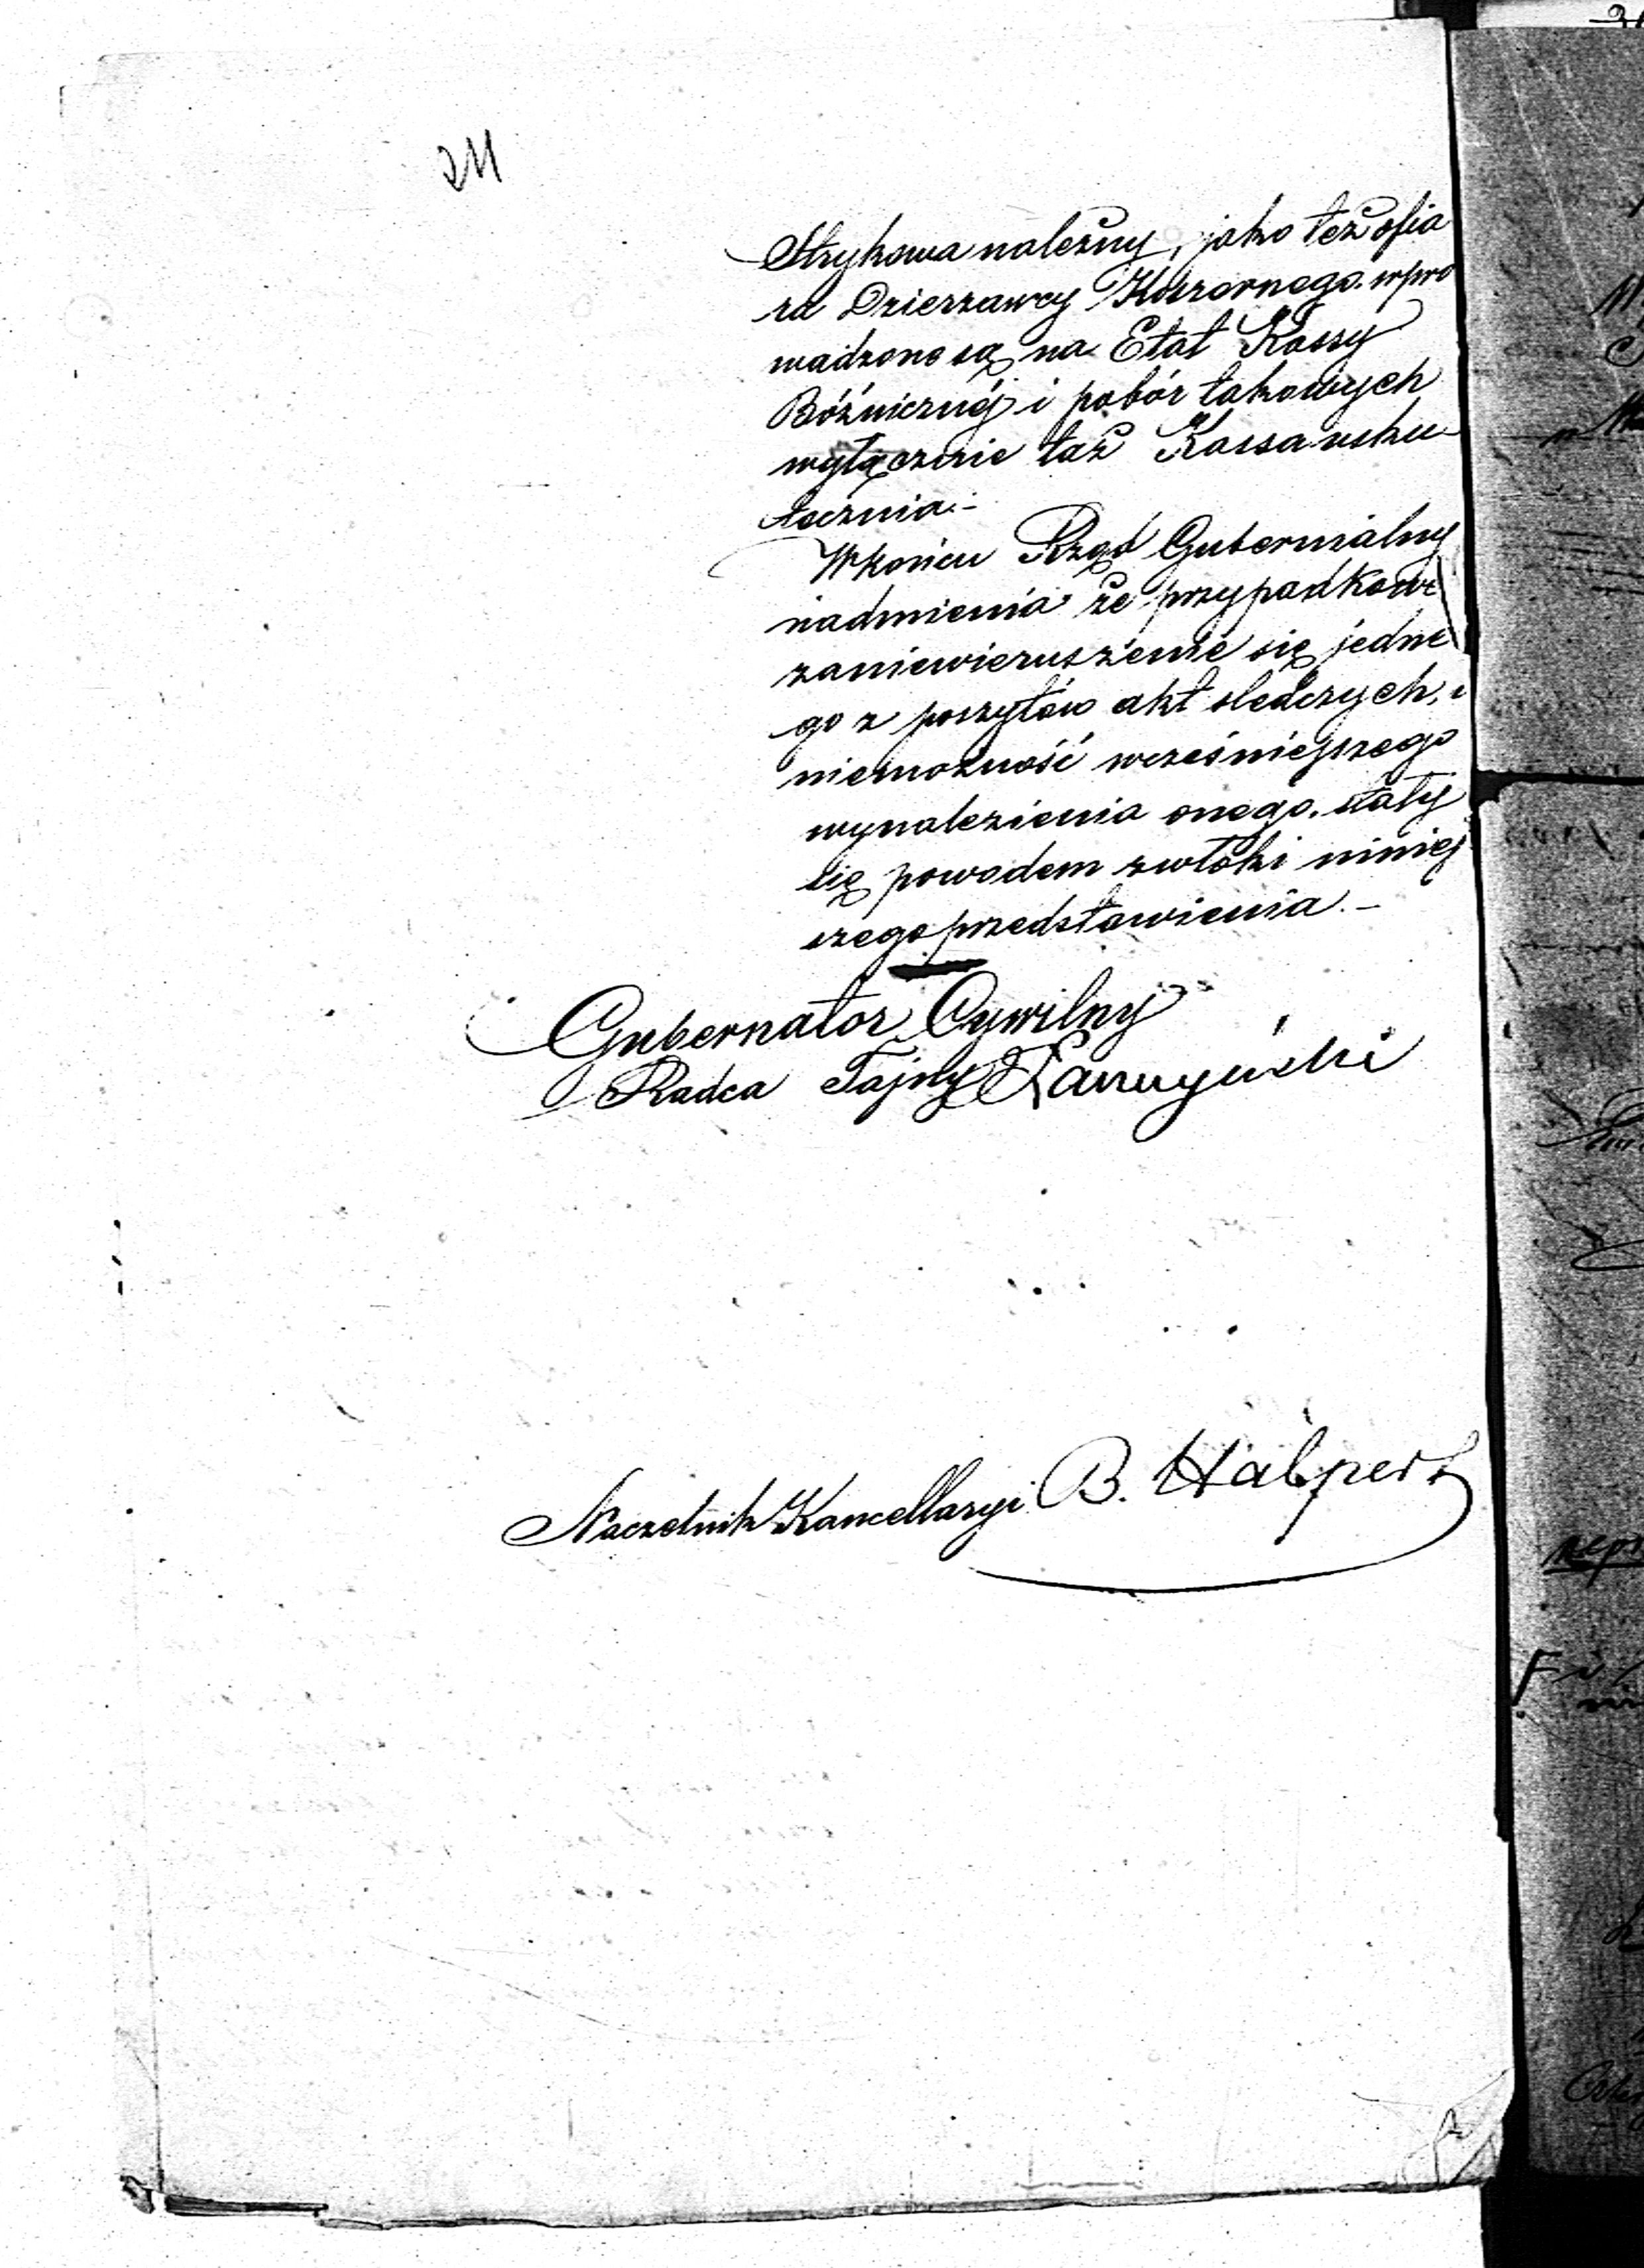 211
Strykowa należny, jako też ofia
ra Dzierzawcy Koszernego wpro
wadzone są na Etat Kassy
Bóźnicznéj i pobór takowych
wyłącznie taż Kassa usku
tecznia.-
W końcu Rząd Gubernialny
nadmienia że przypadkowe
zaniewieruszenie się jedne
go z poszytów akt śledczych, i
niemożność wcześniejszego
wynalezienia onego, stały
się powodem zwłoki niniej
szego przedstawienia.-
Gubernator Cywilny
Radca Tajny Łaszczyński
Naczelnik Kancellaryi B. Halpert